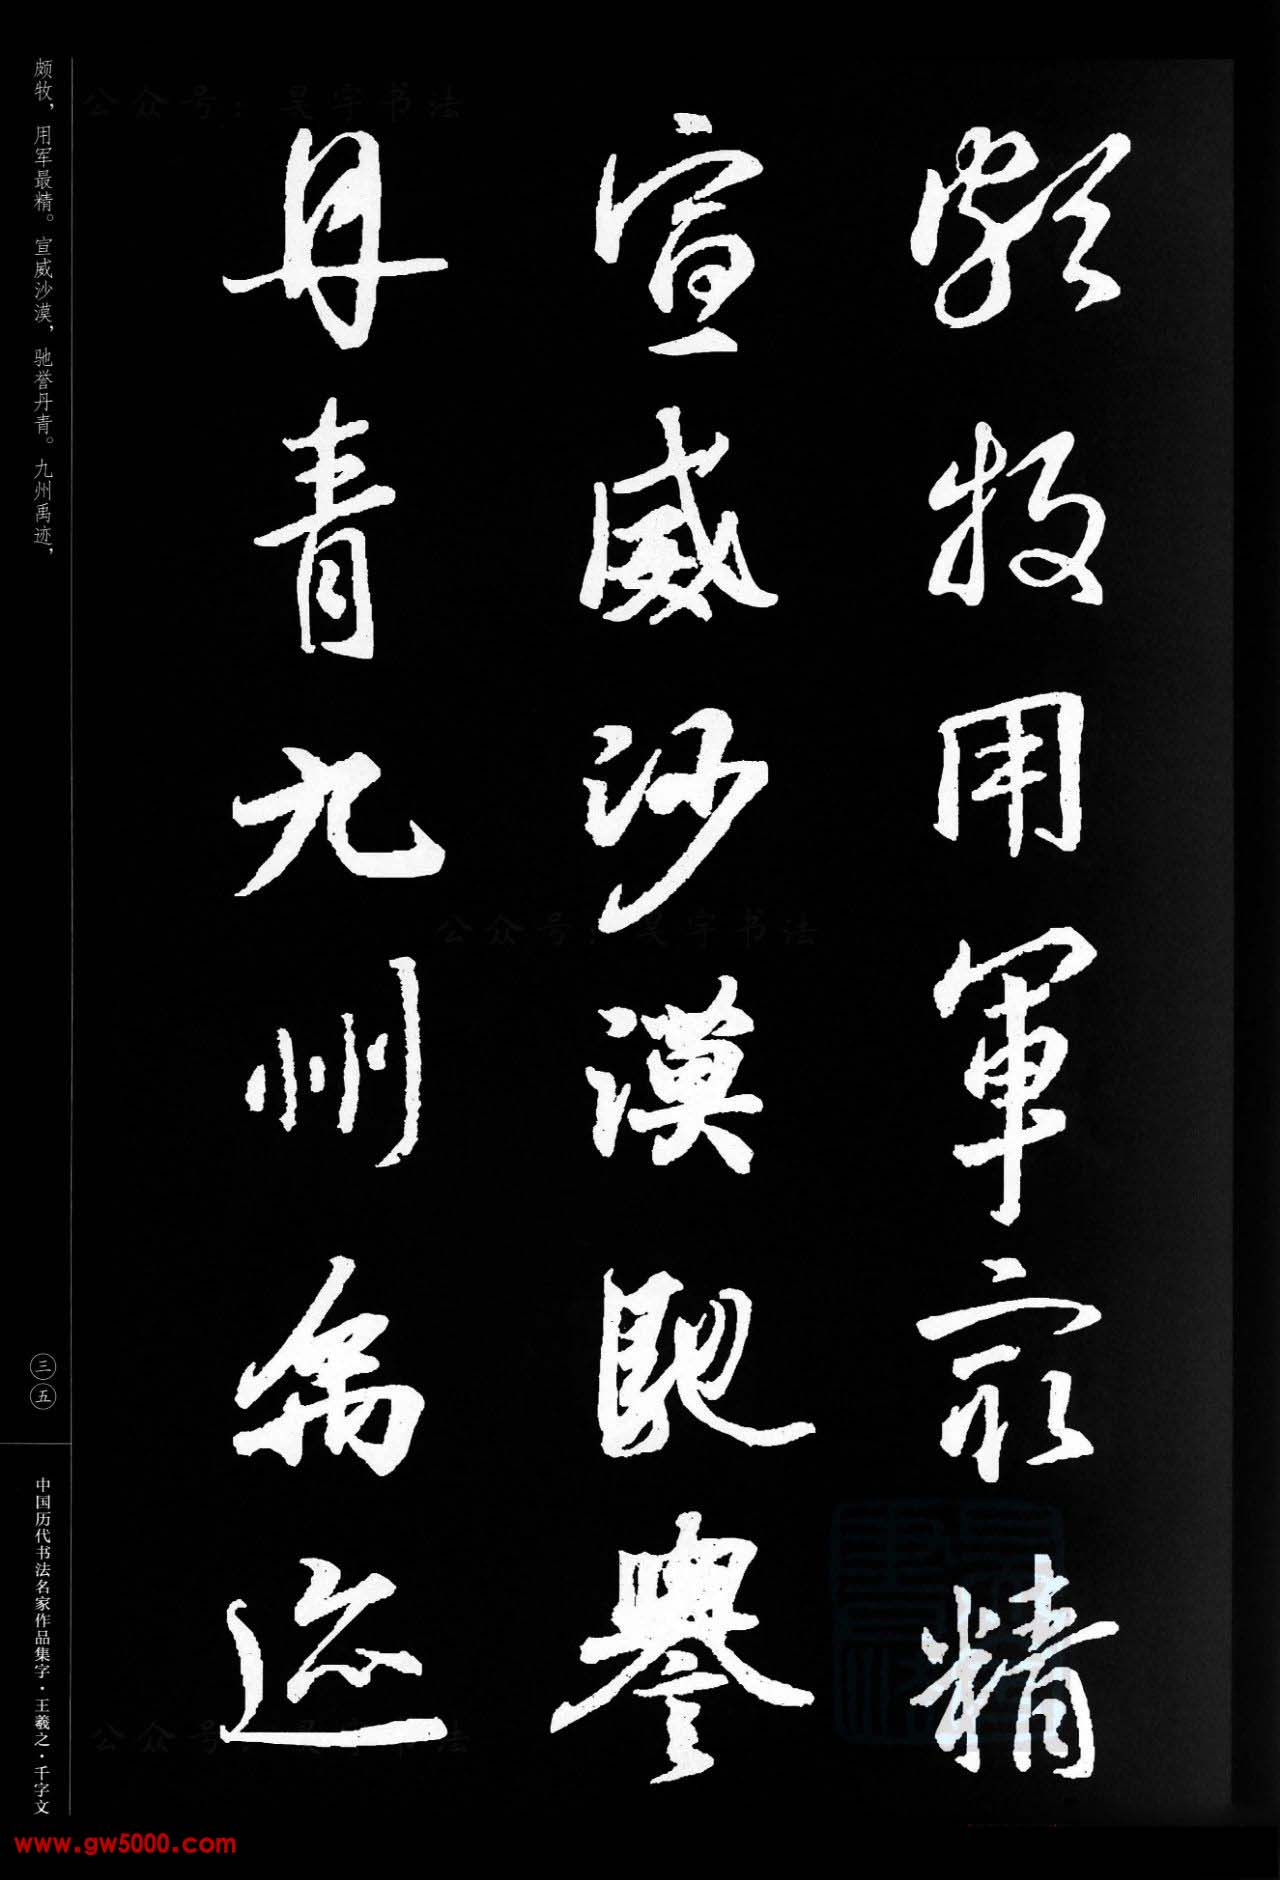 頗牧用軍宻精
宣威沙漠馳譽
丹青九州禹迹
颇牧，用军最精。宣威沙漠，驰誉丹青。九州禹迹，
三五
中国历代书法名家作品集字·王羲之·千字文
公众号：昊宇书法
公众号：昊宇书法
公众号：昊宇书法
www.gw5000.com